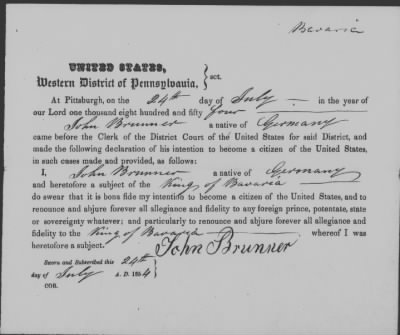 Bavaria
UNITED STATES,
Western District of Pennsylvania, } sct.
At Pittsburgh, on the 24th day of July in the year of
our Lord one thousand eight hundred and fifty four
John Brunner a native of Germany
came before the Clerk of the District Court of the United States for said District, and
made the following declaration of his intention to become a citizen of the United States,
in such cases made and provided, as follows:
I, John Brunner a native of Germany
and heretofore a subject of the King of Bavaria
do swear that it is bona fide my intention to become a citizen of the United States, and to
renounce and abjure forever all allegiance and fidelity to any foreign prince, potentate, state
or sovereignty whatever; and particularly to renounce and abjure forever all allegiance and
fidelity to the King of Bavaria whereof I was
heretofore a subject. John Brunner
Sworn and Subscribed this 24th
day of July A. D. 1854